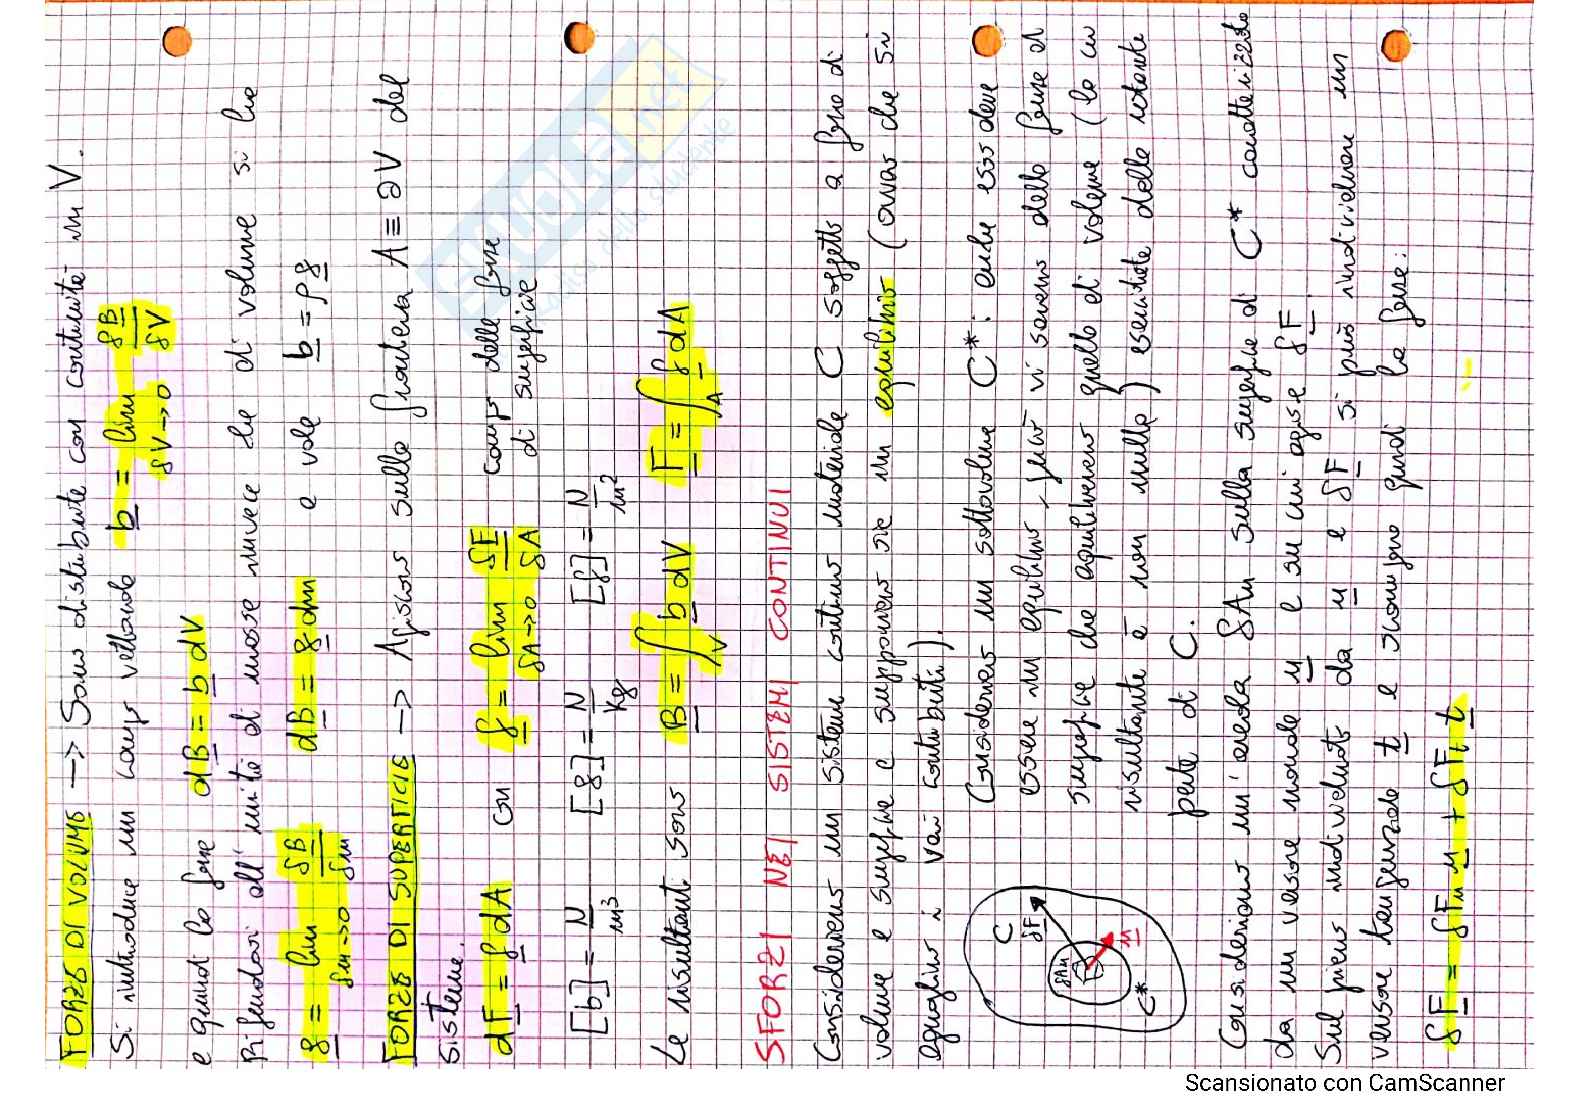 FORZE DI VOLUME → Sono distribuite con continuità in V.
Si introduce un campo vettoriale b = lim δV→0 δB/δV
e quindi la forza dB = b dV
Riferendosi all'unità di massa invece che di volume si ha
g = lim δm→0 δB/δm dB = g dm e vale b = ρ g
FORZE DI SUPERFICIE → Agiscono sulla frontiera A ≡ ∂V del
sistema.
dF = f dA con f = lim δA→0 δF/δA campo delle forze
di superficie
[b] = N/m³ [g] = N/Kg [f] = N/m²
Le risultanti sono B = ∫V b dV F = ∫A f dA
SFORZI NEI SISTEMI CONTINUI
Consideriamo un sistema continuo materiale C soggetto a forze di
volume e superficie e supponiamo sia in equilibrio (ovvero che si
eguaglino i vari contributi).
Consideriamo un sottovolume C*: anche esso deve
essere in equilibrio, però vi saranno delle forze di
superficie che equilibrano quelle di volume (la cui
risultante è non nulla) esercitate dalla restante
parte di C.
C
δF
δAn
n
C*
Consideriamo un'areola δAn sulla superficie di C* caratterizzata
da un versore normale n e su cui agisce δF.
Sul piano individuato da n e δF si può individuare un
versore tangenziale t e scompongo quindi la forza:
δF = δFn n + δFt t
SKUOLA.net
Scansionato con CamScanner